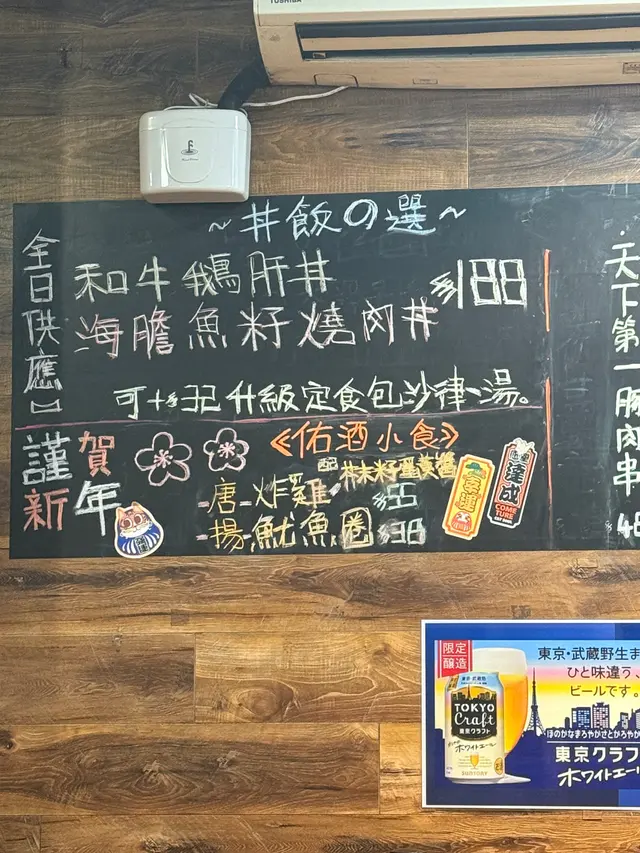 TOSHIBA
~丼飯の選~
全日供應
和牛鵝肝丼
$188
海膽魚籽燒肉丼
可+$32升級定食包沙律、湯。
謹賀
新年
《佑酒小食》
配
唐揚炸雞
$55
魷魚圈
$38
達成
COME
TURE
天下第一豚肉串
48
限定
醸造
東京・武蔵野生ま
ひと味違う、
ビールです。
東京・武蔵野
TOKYO
Craft
東京クラフト
ホワイトエール
SUNTORY
ほのかなまろやかさとかろやか
東京クラフ
ホワイトエール